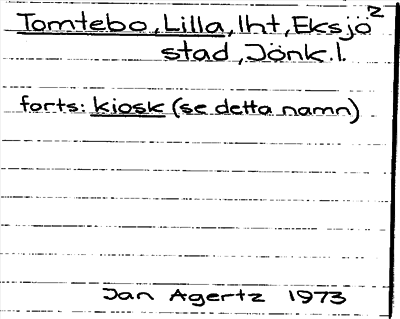 Tomtebo, Lilla, lht, Eksjö 2
stad, Jönk.l.
forts: kiosk (se detta namn)
Jan Agertz 1973